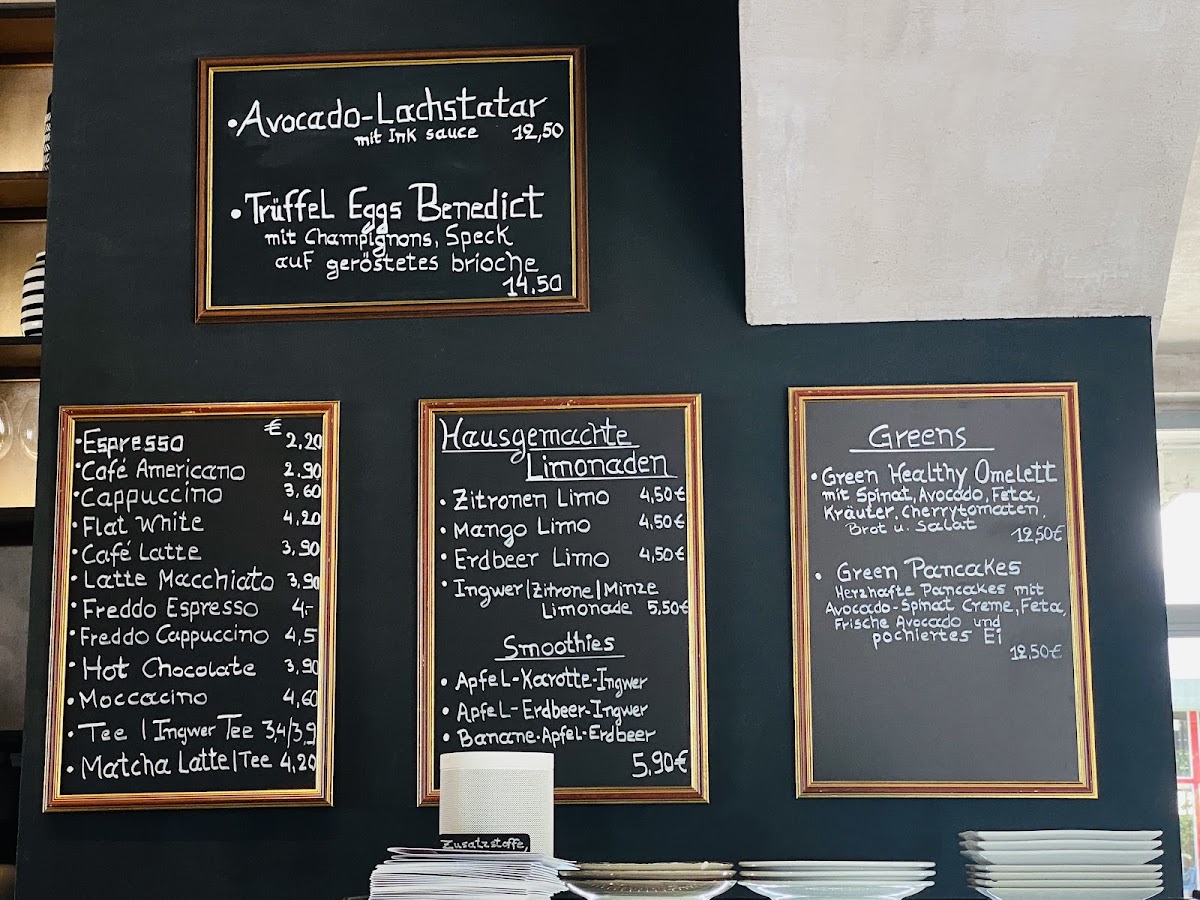 • Avocado-Lachstatar
mit Ink sauce 12,50
• Trüffel Eggs Benedict
mit Champignons, Speck
auf geröstetes brioche
14.50
€
• Espresso 2,20
• Café Americano 2.90
• Cappuccino 3,60
• Flat White 4,20
• Café Latte 3,90
• Latte Macchiato 3,90
• Freddo Espresso 4,-
• Freddo Cappuccino 4,5
• Hot Chocolate 3,90
• Moccacino 4,60
• Tee | Ingwer Tee 3,4/3,9
• Matcha Latte|Tee 4,20
Hausgemachte
Limonaden
• Zitronen Limo 4,50€
• Mango Limo 4,50€
• Erdbeer Limo 4,50€
• Ingwer|Zitrone|Minze
Limonade 5,50€
Smoothies
• Apfel-Karotte-Ingwer
• Apfel-Erdbeer-Ingwer
• Banane-Apfel-Erdbeer
5,90€
Greens
• Green Healthy Omelett
mit Spinat, Avocado, Feta,
Kräuter, Cherrytomaten,
Brot u. Salat
12,50€
• Green Pancakes
Herzhafte Pancakes mit
Avocado-Spinat Creme, Feta,
Frische Avocado und
pochiertes Ei
12,50€
Zusatzstoffe,